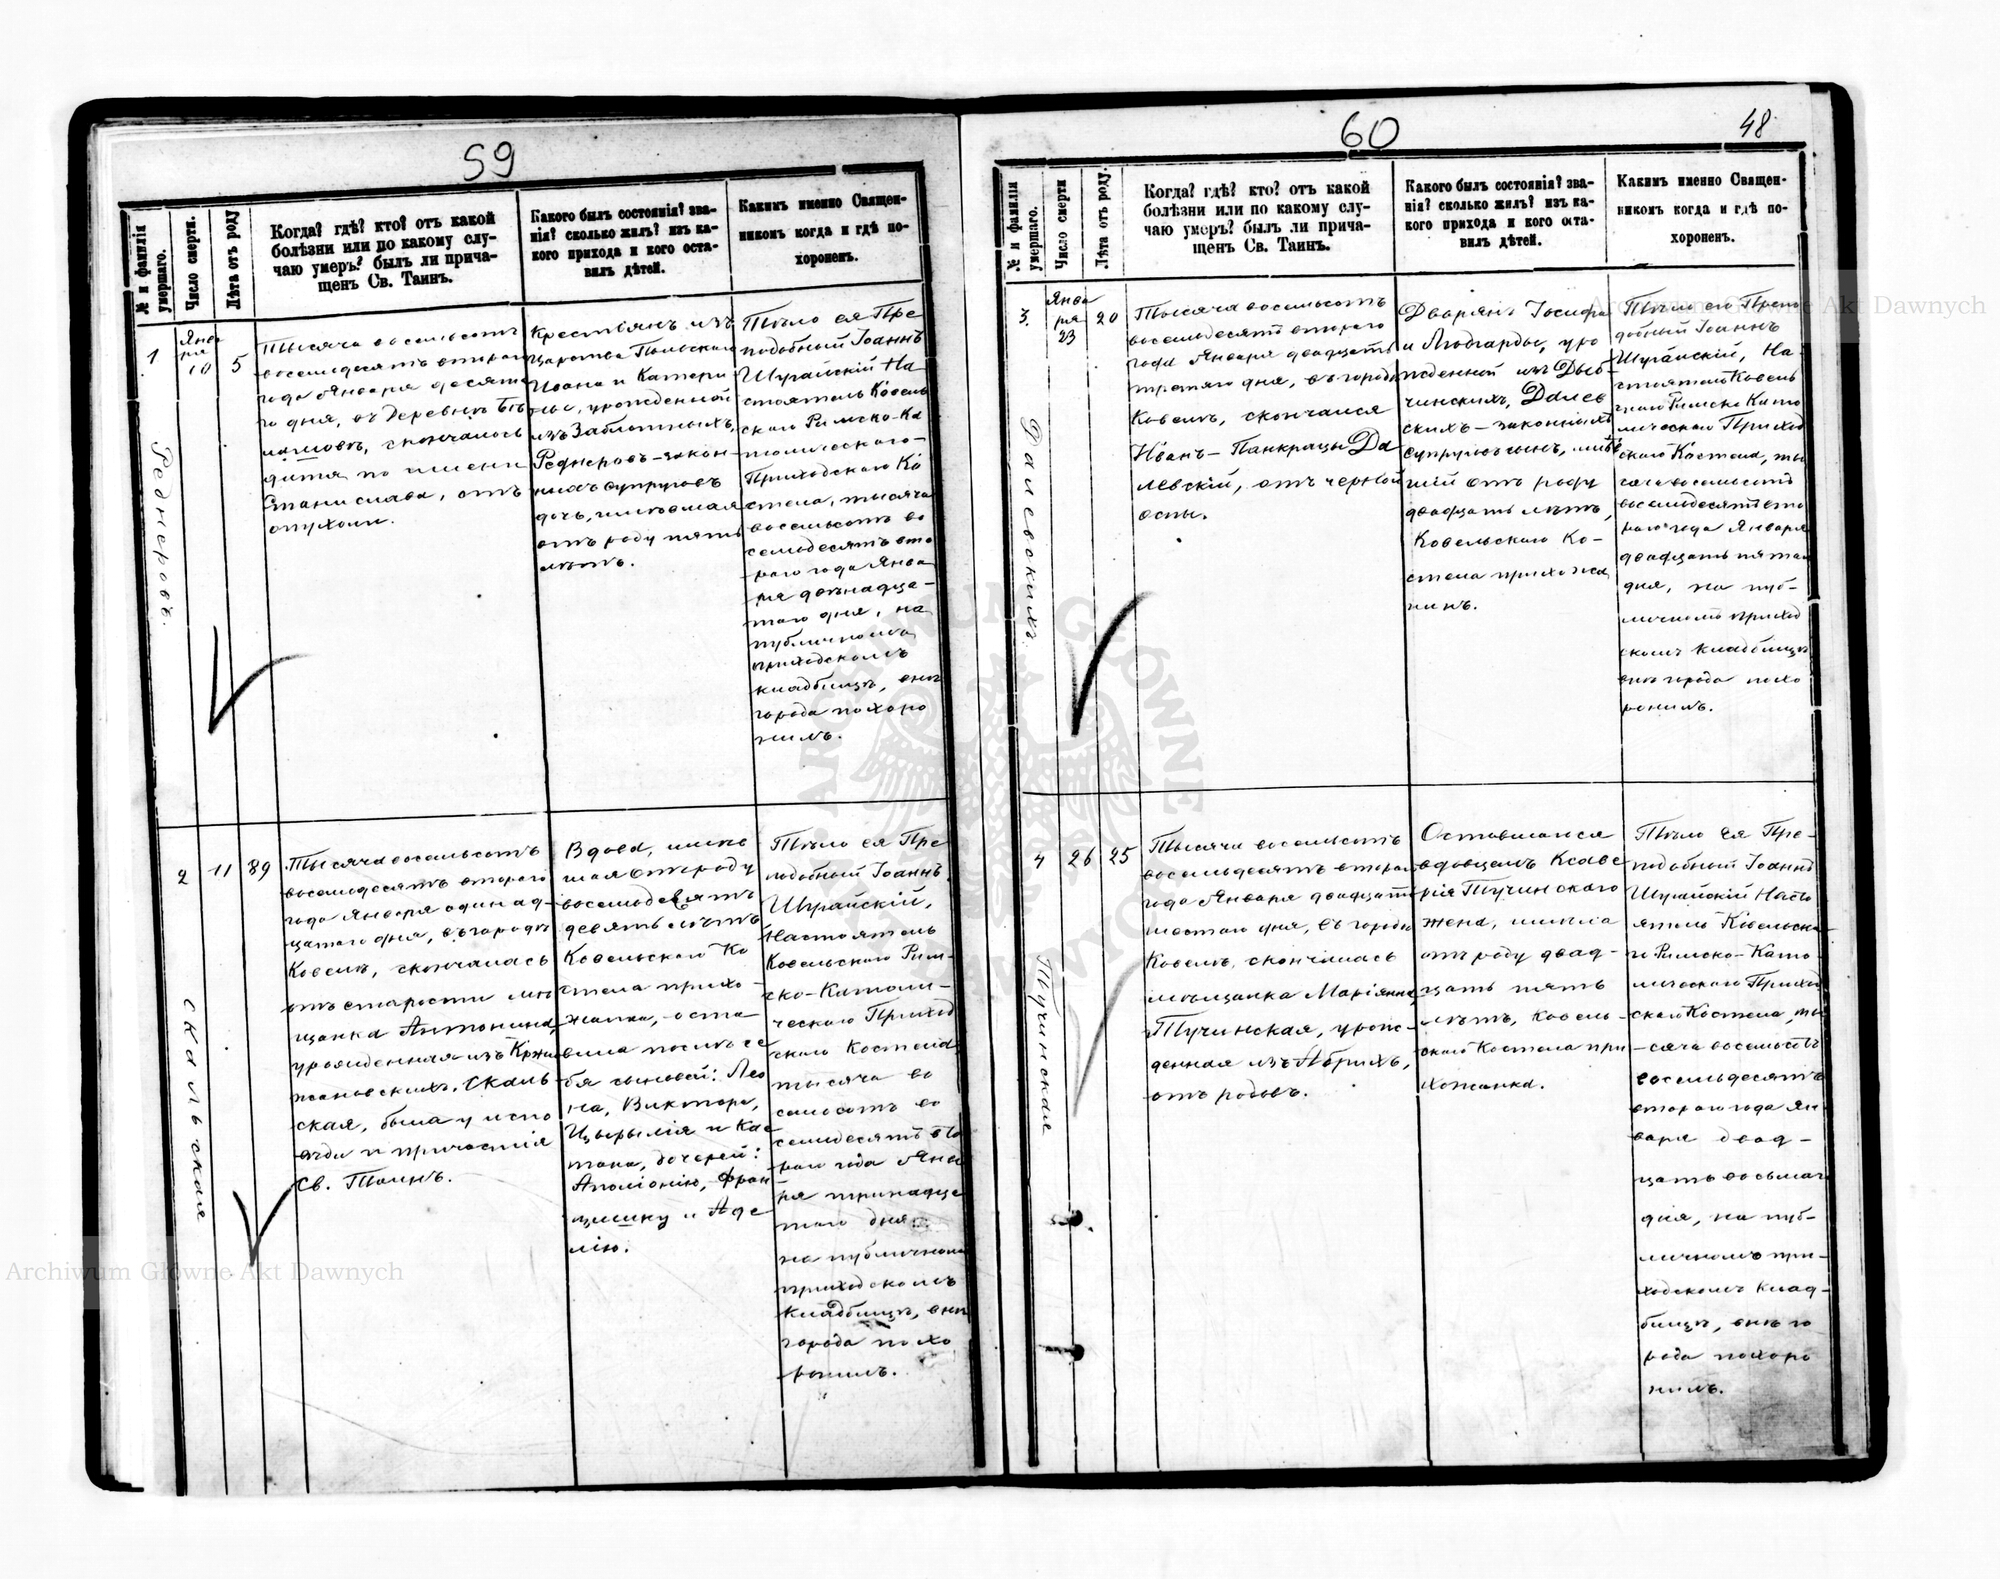 59
№ и фамилія умершаго.
Число смерти.
Лѣта отъ роду
Когда? гдѣ? кто? отъ какой
болѣзни или по какому слу-
чаю умеръ? былъ ли прича-
щенъ Св. Таинъ.
Какого былъ состоянія? зва-
нія? сколько жилъ? изъ ка-
кого прихода и кого оста-
вилъ дѣтей.
Какимъ именно Священ-
никомъ когда и гдѣ по-
хороненъ.
1
Реднеровъ.
Янва
ря
10
5
Тысяча восемьсотъ
восемьдесятъ второго
года Января десята
го дня, въ деревнѣ
скончалось
дитя по имени
Станислава, отъ
опухоли.
Крестьянъ изъ
Царства Польскаго
Ивана и Катери
ны, урожденной
изъ Заблотныхъ,
Реднеровъ – закон
ныхъ супруговъ
дочь, имѣвшая
отъ роду пять
лѣтъ.
Тѣло ея Пре
подобный Іоаннъ
Шурайскій На
стоятель Ковель
скаго Римско-Ка
толическаго
Приходскаго Ко
стела, тысяча
восемьсотъ во
семьдесятъ вто
раго года Янва
ря двѣнадца-
таго дня, на
публичномъ
приходскомъ
кладбищѣ, внѣ
города похоро
нилъ.
2
Скальская
11
89
Тысяча восемьсотъ
восемьдесятъ второго
года Января одинад-
цатаго дня, въ городѣ
Ковелѣ, скончалась
отъ старости мѣ
щанка Антонина,
урожденная изъ Кржи
жановскихъ, Скаль
ская, была у испо
вѣди и причастія
Св. Таинъ.
Вдова, имѣв
шая отъ роду
восемьдесятъ
девять лѣтъ
Ковельскаго Ко
стела прихо-
жанка, оста-
вила послѣ се
бя сыновей: Лео
на, Виктора,
Цырылія и Кае
тана, дочерей:
Аполіонію, Фран
цишку и Аде
лію.
Тѣло ея Пре
подобный Іоаннъ
Шурайскій,
Настоятель
Ковельскаго Рим-
ско-Католи-
ческаго Приход
скаго Костела,
тысяча во
семьсотъ во
семьдесятъ вто
раго года Янва
ря тринадца
таго дня
на публичномъ
приходскомъ
кладбищѣ, внѣ
города похо
ронилъ.
60
48
№ и фамилія умершаго.
Число смерти
Лѣта отъ роду.
Когда? гдѣ? кто? отъ какой
болѣзни или по какому слу-
чаю умеръ? былъ ли прича-
щенъ Св. Таинъ.
Какого былъ состоянія? зва-
нія? сколько жилъ? изъ ка-
кого прихода и кого оста-
вилъ дѣтей.
Какимъ именно Священ-
никомъ когда и гдѣ по-
хороненъ.
3.
Далевскихъ
Янва
ря
23
20
Тысяча восемьсотъ
восемьдесятъ второго
года Января двадцать
третяго дня, въ городѣ
Ковелѣ, скончался
Иванъ – Панкрацы Да
левскій, отъ черной
оспы.
Дворянъ Іосифа
и Людгарды, уро
жденной изъ Дыб
чинскихъ, Далев
скихъ – законныхъ
супруговъ сынъ, имѣв
шій отъ роду
двадцать лѣтъ,
Ковельскаго Ко-
стела прихожа
нинъ.
Тѣло его Препо
добный Іоаннъ
Шурайскій, На-
стоятель Ковель
скаго Римско Като
лическаго Приход
скаго Костела, ты
сяча восемьсотъ
восемьдесятъ вто
раго года Января
двадцать пятаго
дня, на пуб-
личномъ приход
скомъ кладбищѣ
внѣ города похо
ронилъ.
4
Тучинская
26
25
Тысяча восемьсотъ
восемьдесятъ второго
года Января двадцать
шестаго дня, въ городѣ
Ковелѣ, скончалась
мѣщанка Маріянна
Тучинская, урож-
денная изъ Абрихъ,
отъ родовъ.
Оставшагося
вдовцемъ Ксаве
рія Тучинскаго
жена, имѣла
отъ роду двад-
цать пять
лѣтъ, Ковель-
скаго Костела при
хожанка.
Тѣло ея Пре-
подобный Іоаннъ
Шурайскій Насто
ятель Ковельска-
го Римско-Като-
лическаго Приход
скаго Костела, ты
сяча восемьсотъ
восемьдесятъ
второго года Ян
варя двад-
цать восьмаго
дня, на пуб-
личномъ при-
ходскомъ клад-
бищѣ, внѣ го
рода похоро
нилъ.
Archiwum Główne Akt Dawnych
Archiwum Główne Akt Dawnych